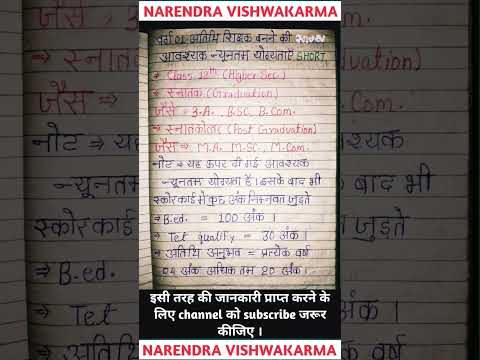 NARENDRA VISHWAKARMA
वर्ग 01 अतिथि शिक्षक बनने की
आवश्यक न्यूनतम योग्यताएँ SHORT
⇒ Class 12th (Higher Sec.)
⇒ स्नातक (Graduation)
जैसे = B.A. , B.SC, B.Com.
⇒ स्नातकोत्तर (Post Graduation)
जैसे ⇒ M.A. M.Sc., M.Com.
नोट ⇒ यह ऊपर दी गई आवश्यक
न्यूनतम योग्यता हैं। इसके बाद भी
स्कोरकार्ड में कुछ अंक निम्नवत जुड़ते
⇒ B.ed. = 100 अंक ।
⇒ Tet qualify = 30 अंक ।
⇒ अतिथि अनुभव = प्रत्येक वर्ष
04 अंक अधिकतम 20 अंक ।
इसी तरह की जानकारी प्राप्त करने के
लिए channel को subscribe जरूर
कीजिए ।
NARENDRA VISHWAKARMA